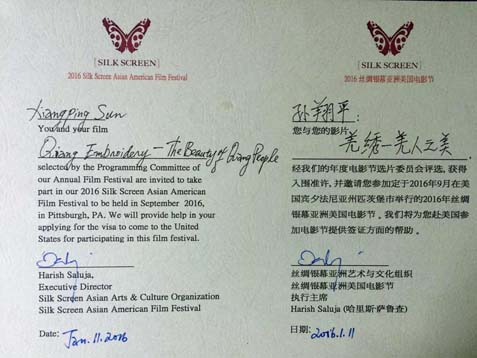 [SILK SCREEN]
2016 Silk Screen Asian American Film Festival
Xiangping Sun
You and your film
Qiang Embroidery — The Beauty of Qiang People
selected by the Programming Committee of
our Annual Film Festival are invited to take
part in our 2016 Silk Screen Asian American
Film Festival to be held in September 2016,
in Pittsburgh, PA. We will provide help in your
applying for the visa to come to the United
States for participating in this film festival.
Harish Saluja,
Executive Director
Silk Screen Asian Arts & Culture Organization
Silk Screen Asian American Film Festival
Date: Jan. 11. 2016
[SILK SCREEN]
2016 丝绸银幕亚洲美国电影节
孙翔平:
您与您的影片
羌绣—羌人之美
经我们的年度电影节选片委员会评选，获得
入围准许，并邀请您参加定于2016年9月在美
国宾夕法尼亚州匹茨堡市举行的2016年丝绸
银幕亚洲美国电影节。我们将为您赴美国参
加电影节提供签证方面的帮助。
丝绸银幕亚洲艺术与文化组织
丝绸银幕亚洲美国电影节
执行主席
Harish Saluja (哈里斯·萨鲁查)
日期: 2016.1.11